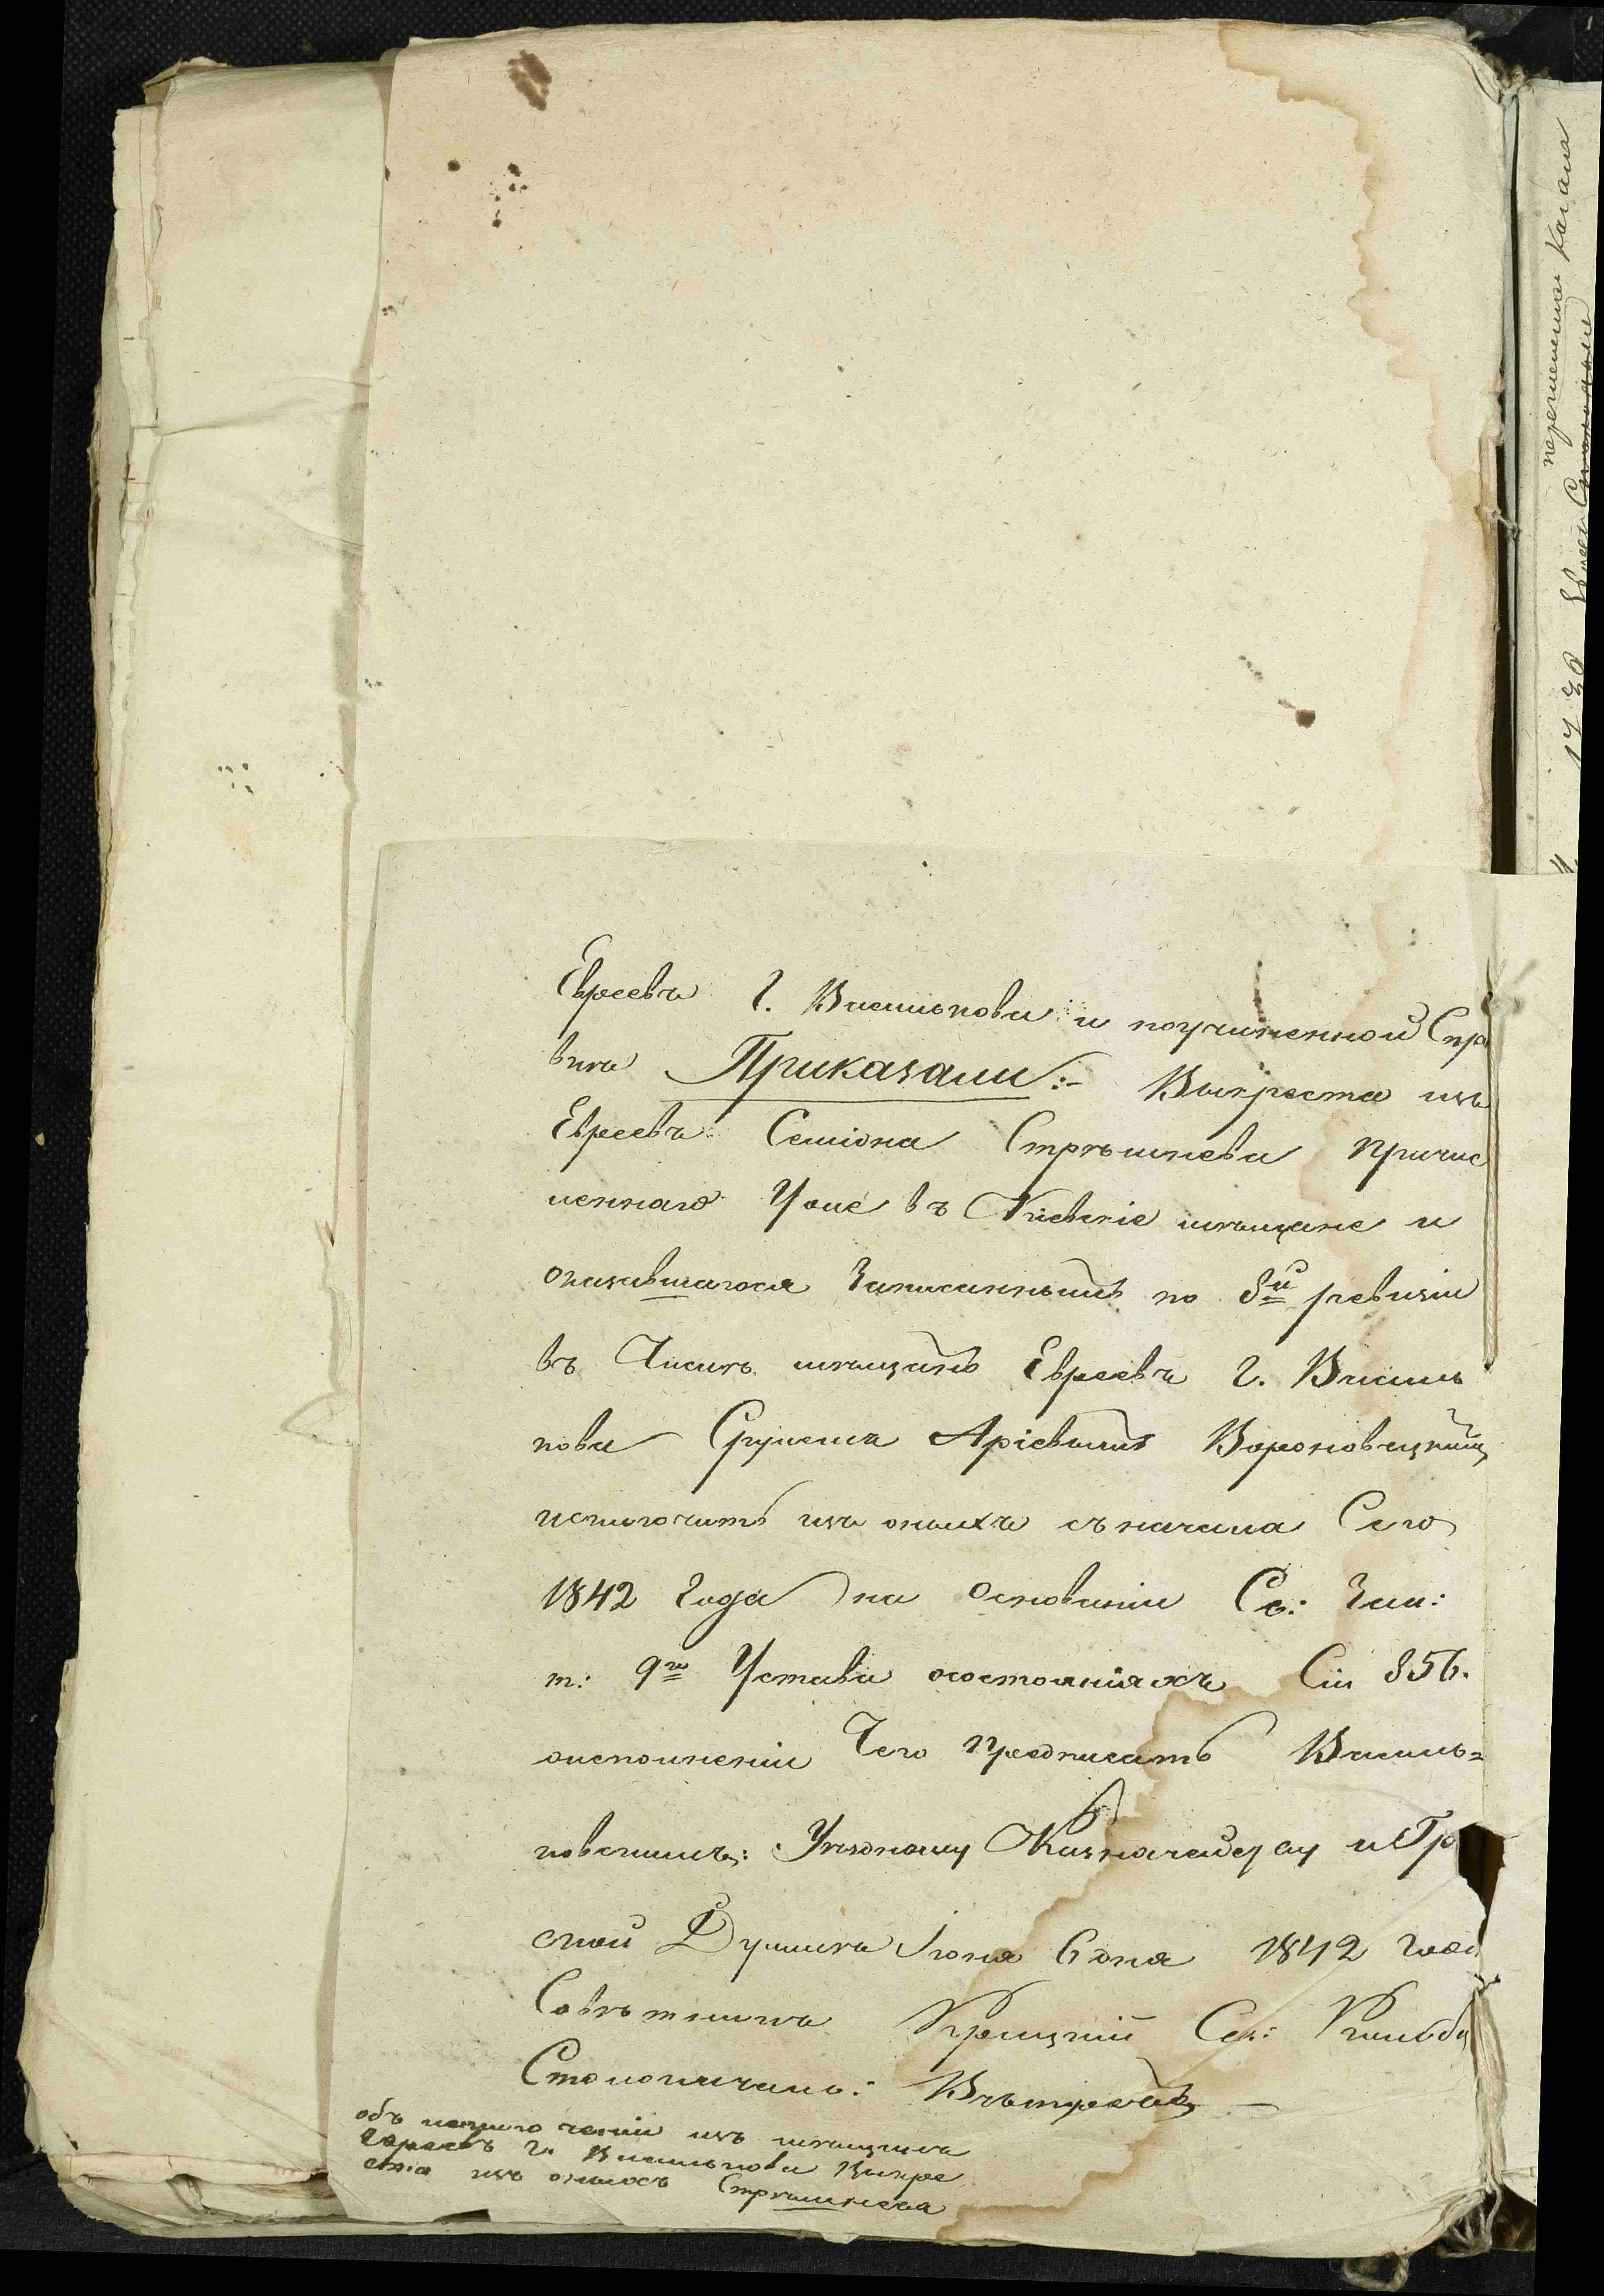 Евреевъ г. Василькова и поучиненной Спра
вкѣ Приказали:- Выкреста изъ
Евреевъ Семіона Стрѣшнева причис
леннаго уже въ Кіевскіе мѣщане и
оказавшагося Записаннымъ по 8й ревизіи
въ Числѣ мѣщанъ Евреевъ г. Василь
кова Срулемъ Аріевымъ Вороновицкимъ
исключить изъ оныхъ съ начала Сего
1842 года на Основаніи Св: Зак:
т: 9го Устава осостояніяхъ Ст 856.
оисполненіи Чего предписать Василь=
ковскимъ: Уѣздному Казначейству и Гр
ской Думѣ Іюня 6 дня 1842 года
Совѣтникъ Сек:
Столоначаль:
объ исключеніи изъ мѣщанъ
Евреевъ г. Василькова Выкре
ста изъ оныхъ Стрѣшнева
перемененіи Кагала